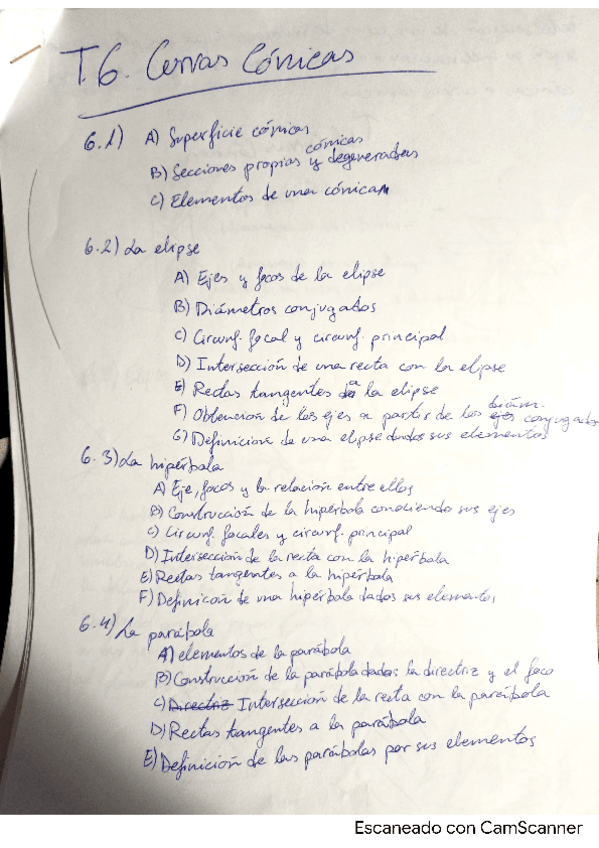 T.6. Curvas Cónicas
6.1) A) Superficie cónicas
B) Secciones propias y cónicas degeneradas
C) Elementos de una cónica
6.2) La elipse
A) Ejes y focos de la elipse
B) Diámetros conjugados
C) Circunf. focal y circunf. principal
D) Intersección de una recta con la elipse
E) Rectas tangentes a la elipse
F) Obtención de los ejes a partir de los diám. conjugados
G) Definición de una elipse dados sus elementos
6.3) La hipérbola
A) Eje, focos y la relación entre ellos
B) Construcción de la hipérbola conociendo sus ejes
C) Circunf. focales y circunf. principal
D) Intersección de la recta con la hipérbola
E) Rectas tangentes a la hipérbola
F) Definición de una hipérbola dados sus elementos
6.4) La parábola
A) elementos de la parábola
B) Construcción de la parábola dadas la directriz y el foco
C) Directriz Intersección de la recta con la parábola
D) Rectas tangentes a la parábola
E) Definición de las parábolas por sus elementos
Escaneado con CamScanner